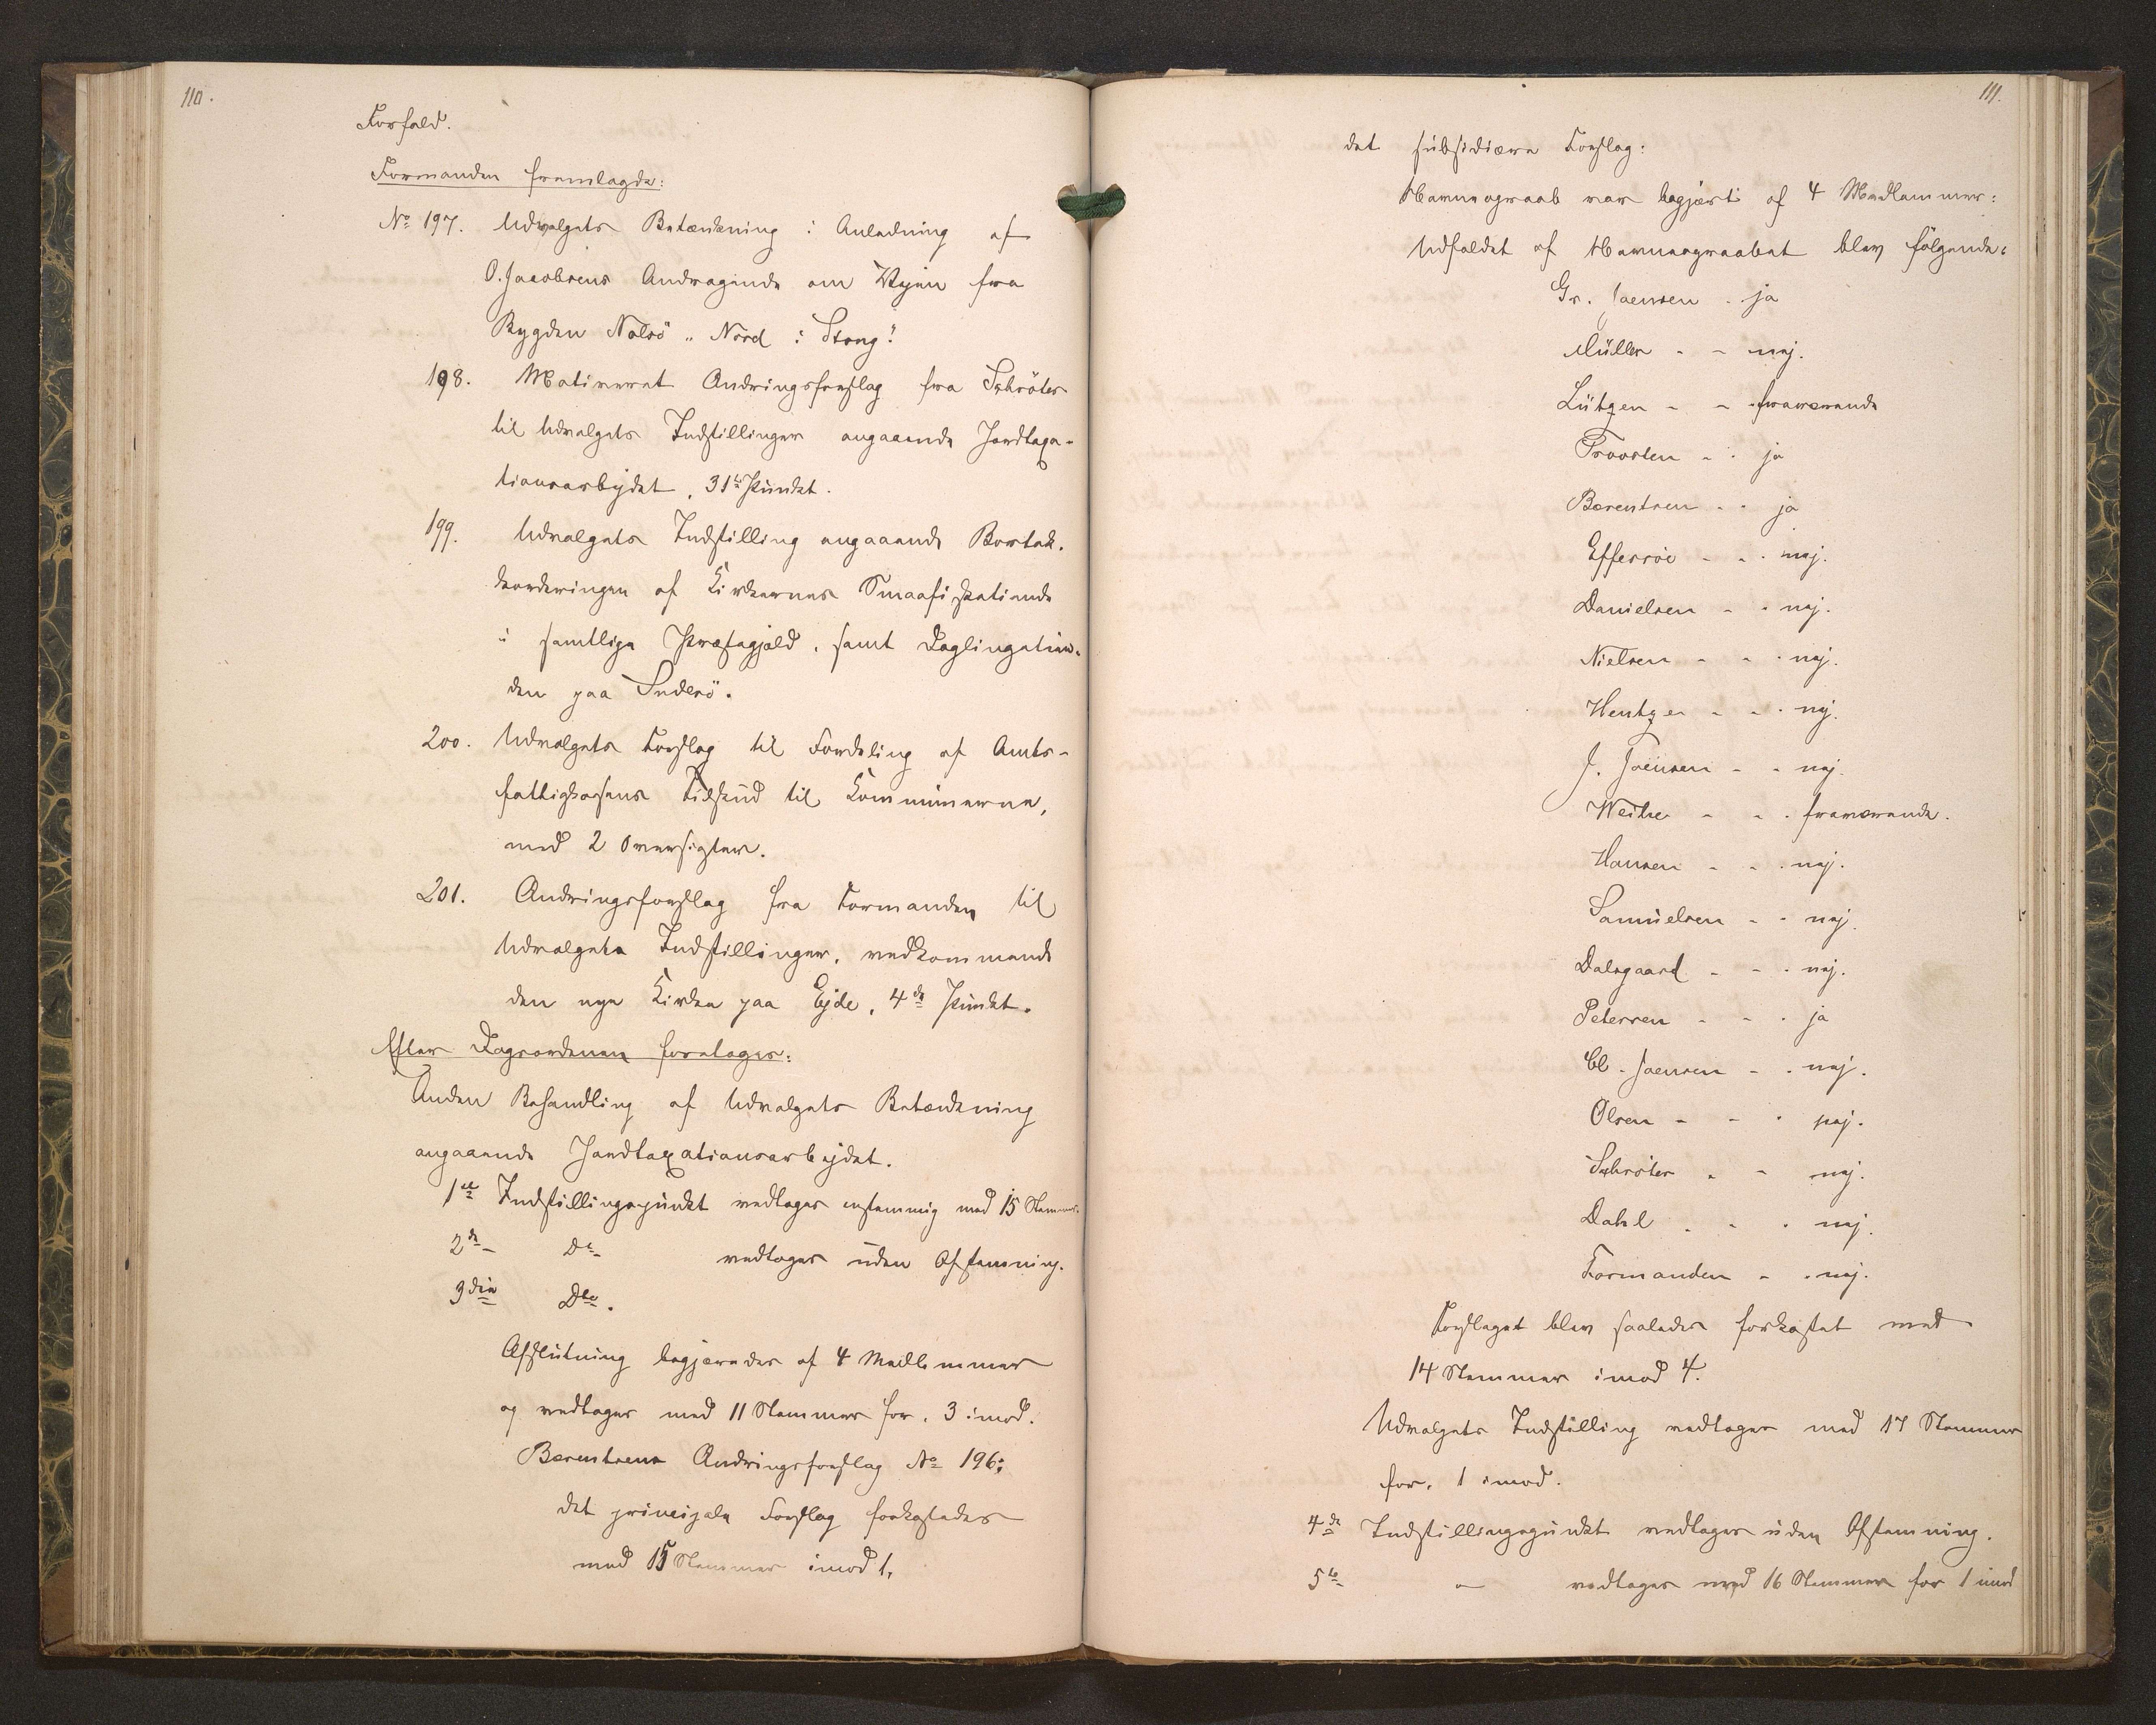 110.
Forfald.
Formanden fremlagde:
No 197. Udvalgets Betænkning i Anledning af
O. Jacobsens Andragende om Vejen fra
Bygden Nolsö "Nord i Stong".
198. Motiveret Ændringsforslag fra Schröter
til Udvalgets Indstillinger angaaende Jordtaxa-
tionsarbejdet, 31te Punkt.
199. Udvalgets Indstilling angaaende Bortak-
korderingen af Kirkernes Smaafisketiende
i samtlige Præstegjæld, samt Døglingetien-
den paa Suderö.
200. Udvalgets Forslag til Fordeling af Amts-
fattigkassens Tilskud til Kommunerne,
med 2 Oversigter.
201. Ændringsforslag fra Formanden til
Udvalgets Indstillinger, vedkommende
den nye Kirke paa Ejde, 4de Punkt.
Efter Dagsordenen foretoges:
Anden Behandling af Udvalgets Betænkning
angaaende Jordtaxationsarbejdet.
1ste Indstillingspunkt vedtoges enstemmig med 15 Stemmer.
2det Do vedtoges uden Afstemning.
3die Dto.
Afslutning begjæredes af 4 Medlemmer
og vedtoges med 11 Stemmer for, 3 imod.
Bærentsens Ændringsforslag No 196:
det principale Forslag forkastedes
med 15 Stemmer imod 1,
111.
det subsidiære Forslag:
Navneopraab var begjært af 4 Medlemmer:
Udfaldet af Navneopraabet blev følgende:
Gr. Joensen - ja
Müller - - nej.
Lützen - - fraværende
Proosten - - ja
Bærentsen - - ja
Effersöe - - - nej.
Danielsen - - nej.
Nielsen - - - nej.
Hentze - - - nej.
J. Joensen - - nej.
Weihe - - - fraværende.
Hansen - - - nej.
Samuelsen - - nej.
Dalsgaard - - - nej.
Petersen - - - ja
Cl. Joensen - - nej.
Olsen - - - nej.
Schröter - - nej.
Dahl - - - nej.
Formanden - - nej.
Forslaget blev saaledes forkastet med
14 Stemmer imod 4.
Udvalgets Indstilling vedtoges med 17 Stemmer
for, 1 imod.
4de Indstillingspunkt vedtoges uden Afstemning.
5te - vedtoges med 16 Stemmer for 1 imod